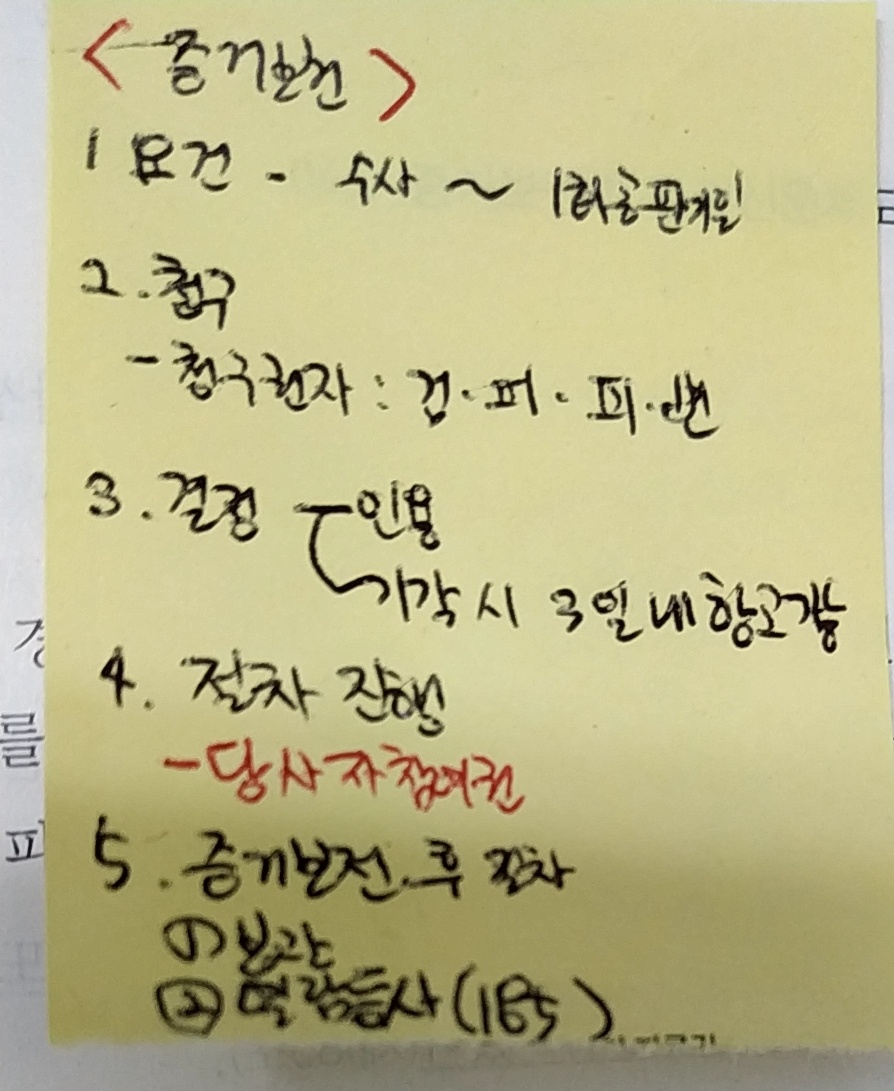 <증거보전>
1 요건 - 수사 ~ 1회공판기일
2. 청구
- 청구권자 : 검·피·피·변
3. 결정 인용
기각 시 3일 내 항고가능
4. 절차 진행
- 당사자참여권
5. 증거보전 후 절차
① 보관
② 열람등사 (185)
를
피